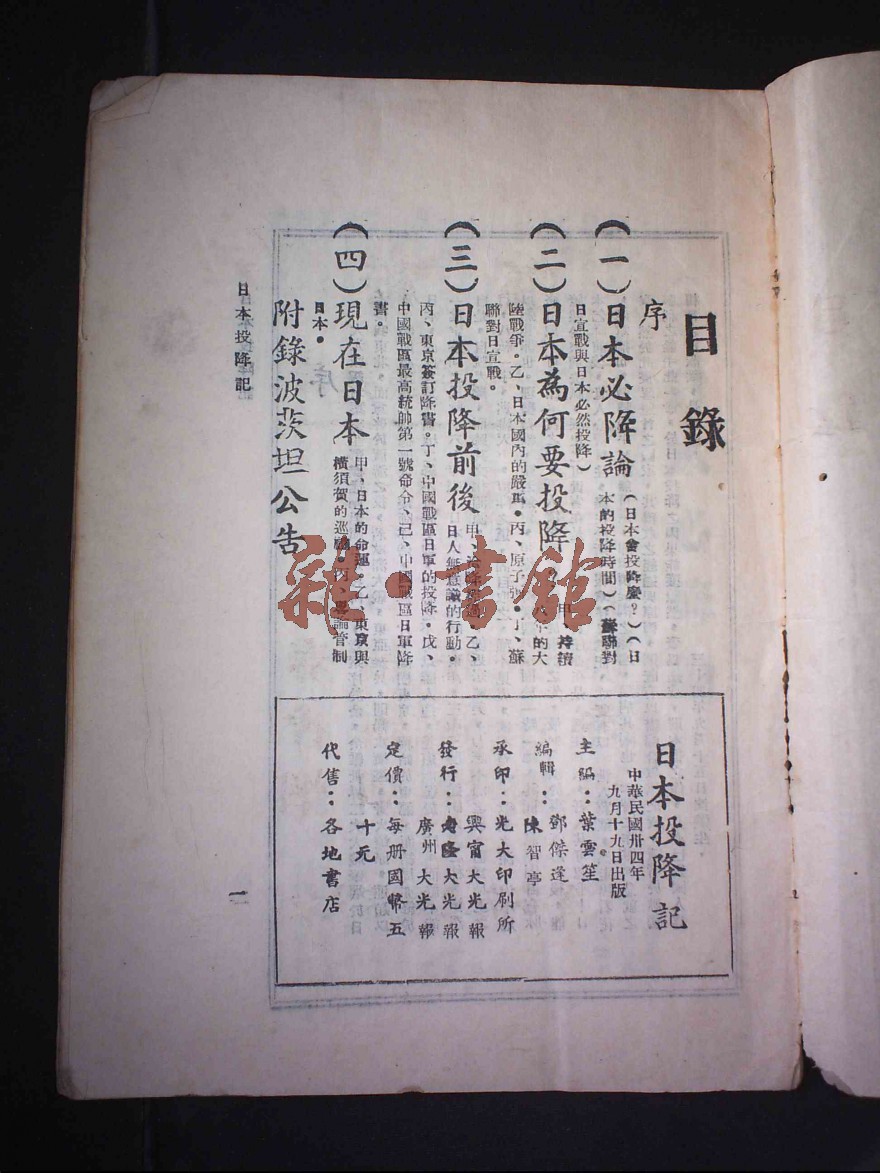 目錄
序
(一)日本必降論
(日本會投降麼?)(日
本的投降時間)(蘇聯對
日宣戰與日本必然投降)
(二)日本為何要投降
甲、持續
的大
陸戰爭。乙、日本國內的嚴重。丙、原子彈。丁、蘇
聯對日宣戰。
(三)日本投降前後
甲、洽降經過。乙、
日人無意識的行動。
丙、東京簽訂降書。丁、中國戰區日軍的投降。戊、
中國戰區最高統帥第一號命令、己、中國戰區日軍降
書。
(四)現在日本
甲、日本的命運、乙、東京與
橫須賀的巡禮。丙、輿論管制
日本。
附錄波茨坦公告
日本投降記
中華民國卅四年
九月十九日出版
主編:葉雲笙
編輯:鄧傑逢
陳智亭
承印:光大印刷所
發行:興寧大光報
老隆大光報
廣州大光報
定價:每册國幣五
十元
代售:各地書店
日本投降記
一
雜·書館